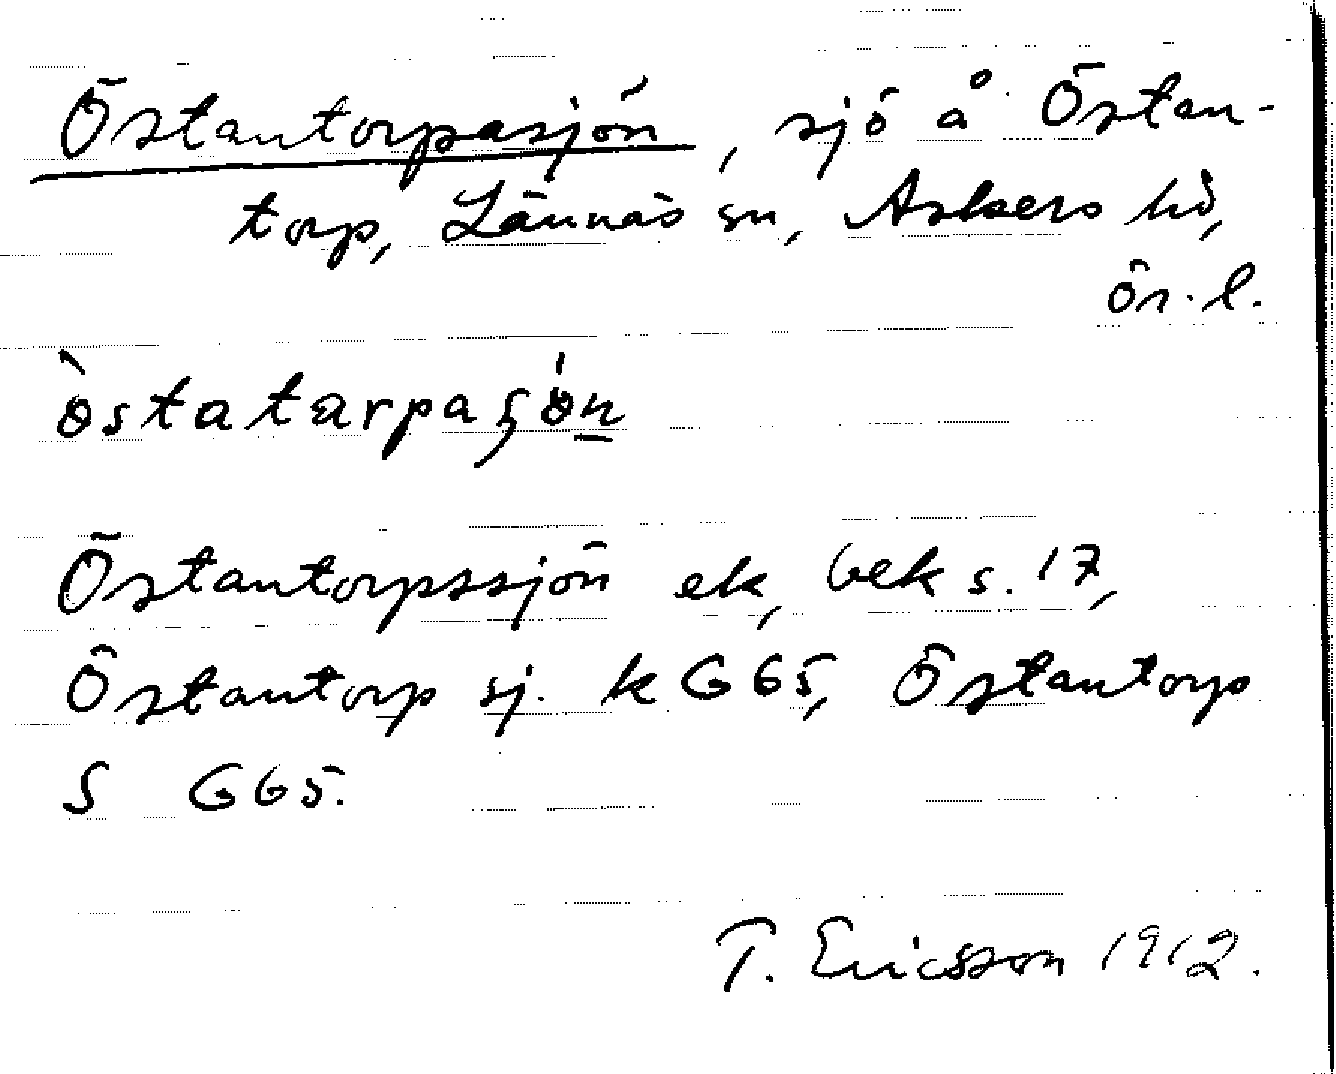 Östantorpasjön, sjö å Östan-
torp, Lännäs sn, Askers hd,
Ör. l.
ò̀statarpaʂö́n
Östantorpssjön ek, bek s. 17,
Östantorp sj. k G65, Östantorp
S G65.
T. Ericsson 1912.